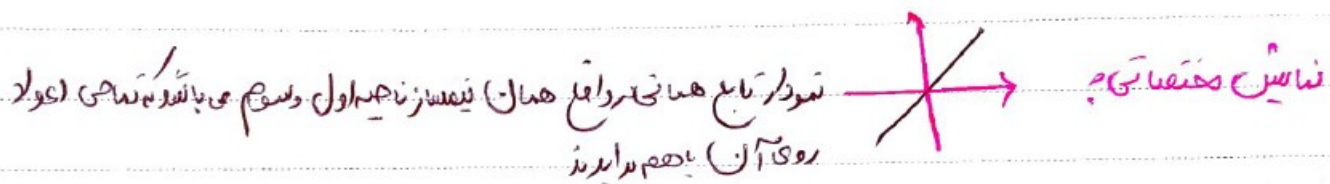 نمایش مختصاتی:
نمودار تابع همانی در واقع همان نیمساز ناحیه اول و سوم می باشد که تمامی اعداد
روی آن با هم برابرند